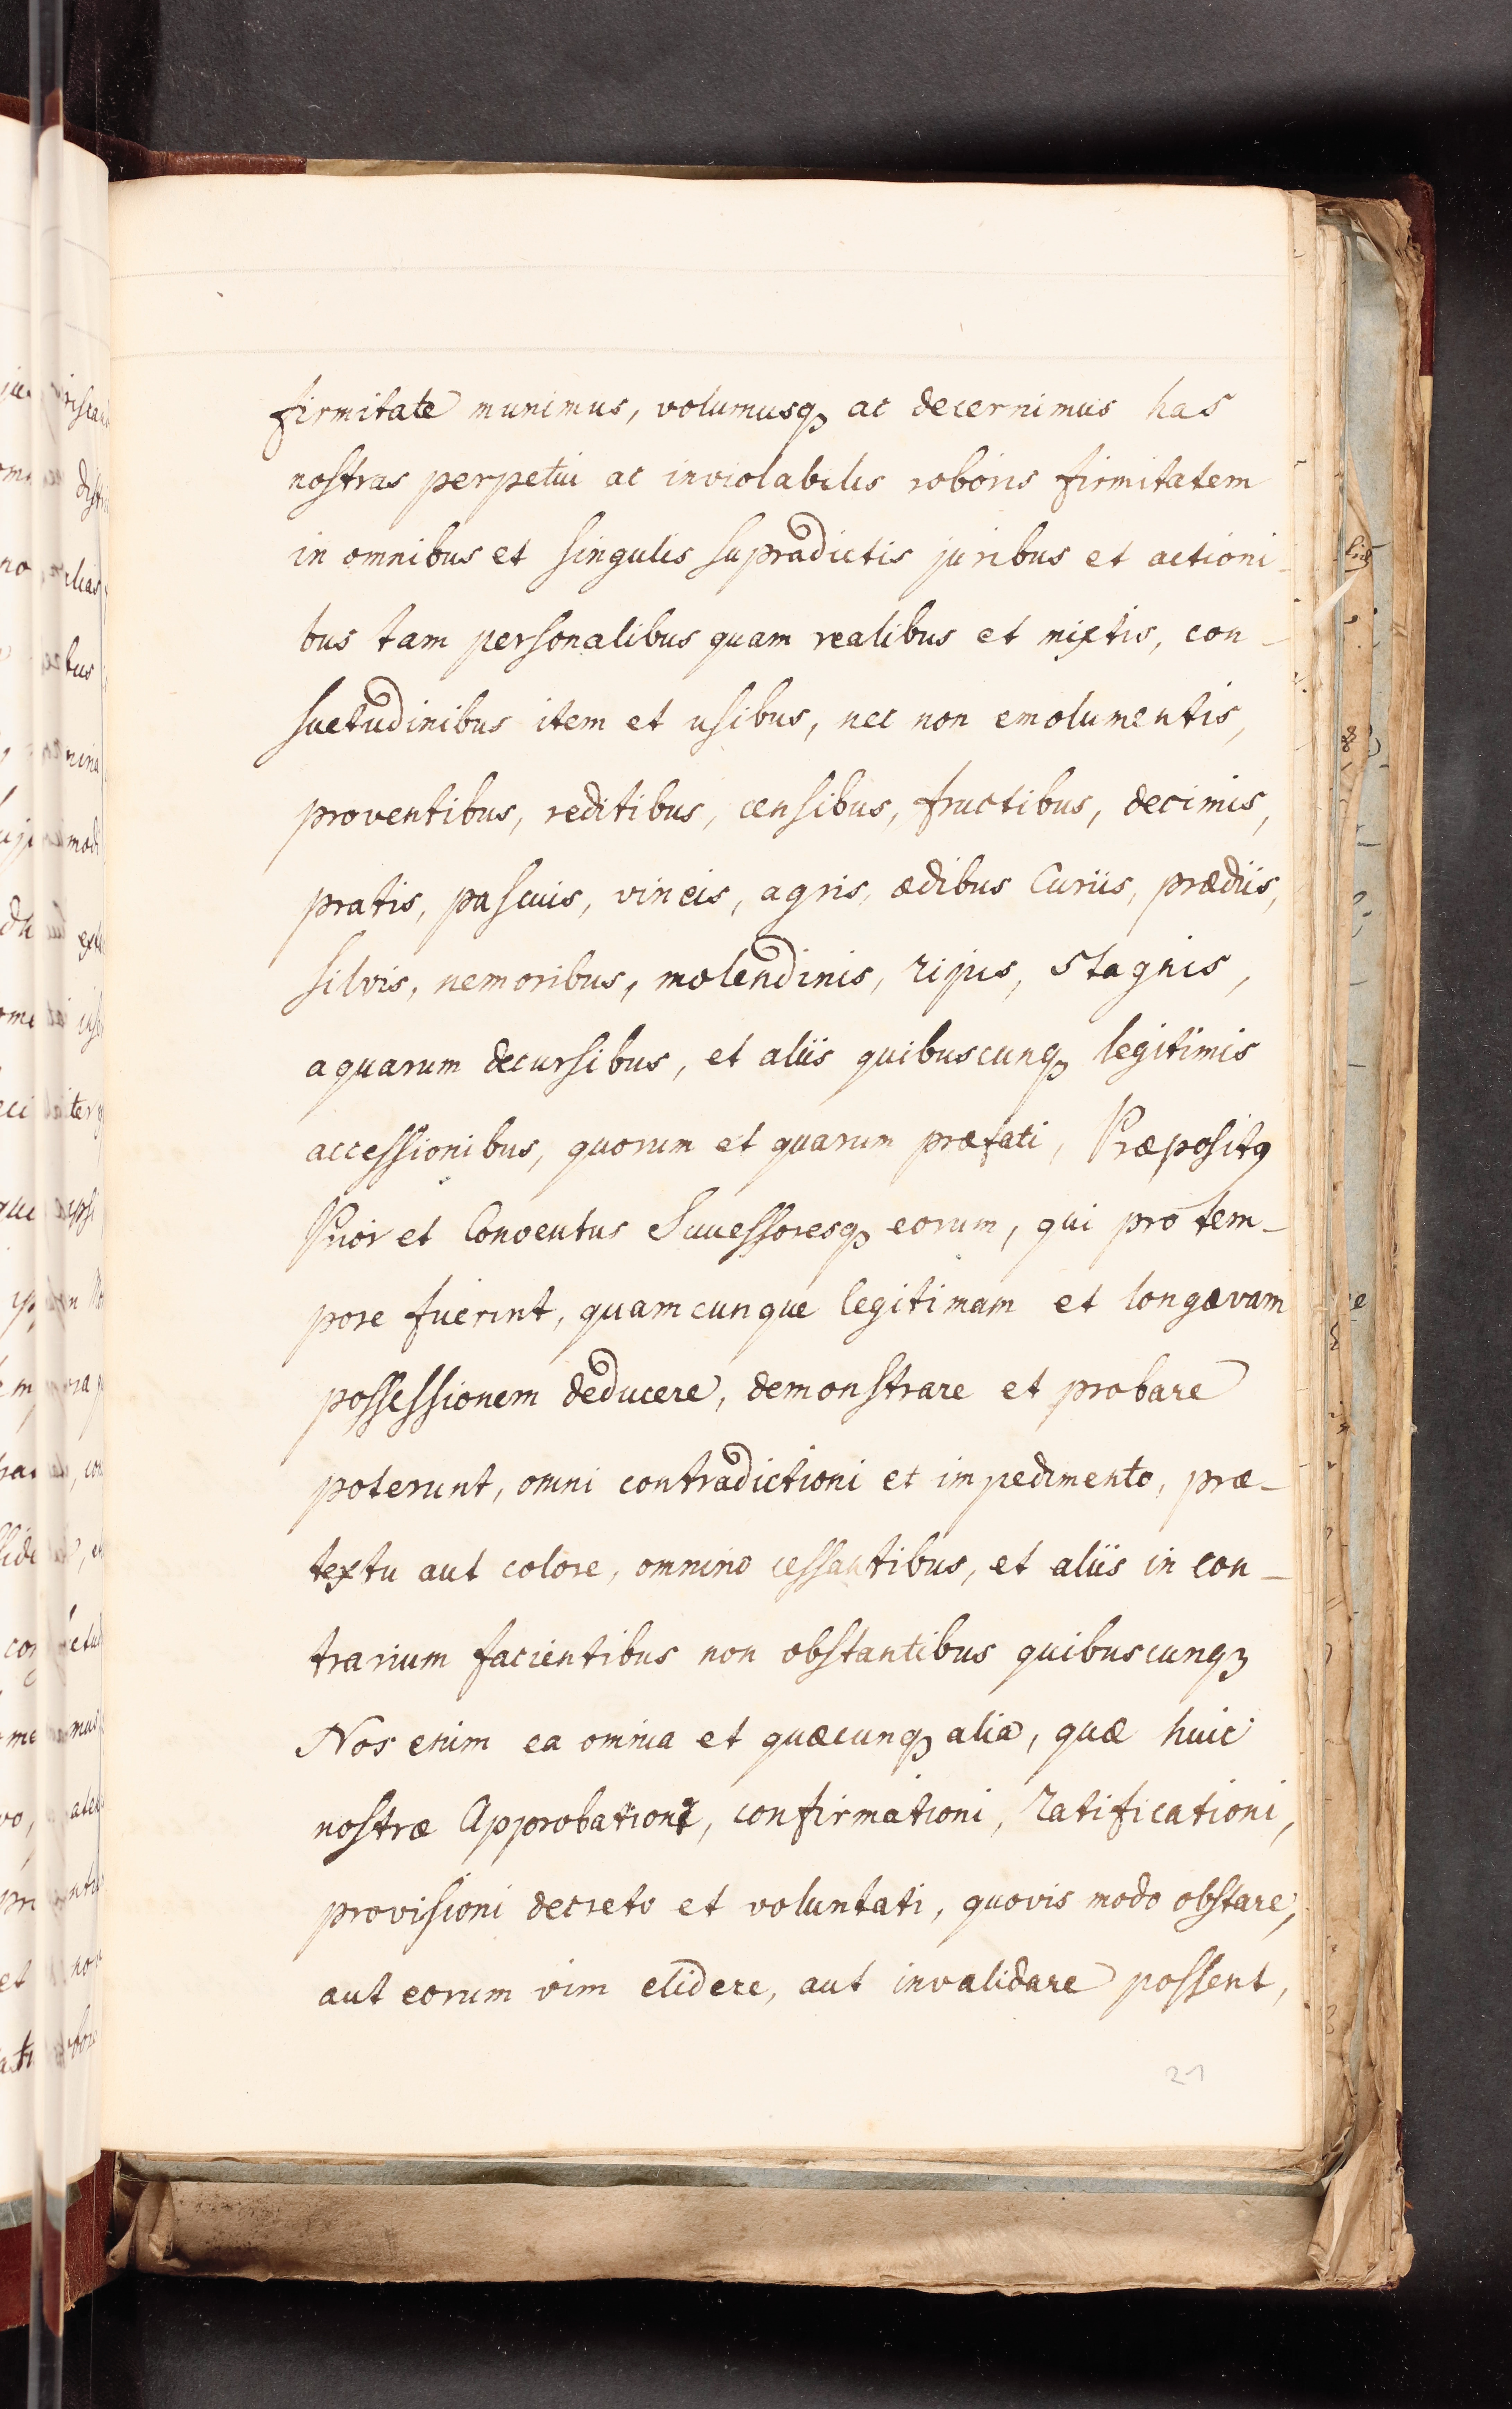 firmitate munimus, volumusq₃ ac decernimus has
nostras perpetui ac inviolabilis roboris firmitatem
in omnibus et singulis supradictis juribus et actioni-
bus tam personalibus quam realibus et mixtis, con-
suetudinibus item et usibus, nec non emolumentis,
proventibus, reditibus, censibus, fructibus, decimis,
pratis, pascuis, vineis, agris, ædibus Curiis, prædiis,
silvis, nemoribus, molendinis, ripis, stagnis,
aquarum decursibus, et aliis quibuscunq₃ legitimis
accessionibus, quorum et quarum præfati, Præpositꝰ
Prior et Conventus Successoresq₃ eorum, qui pro tem-
pore fuerint, quamcunque legitimam et longævam
possessionem deducere, demonstrare et probare
poterunt, omni contradictioni et impedimento, præ-
textu aut colore, omnino cessantibus, et aliis in con-
trarium facientibus non obstantibus quibuscunq₃
Nos enim ea omnia et quæcunq₃ alia, quæ huic
nostræ Approbationi, confirmationi, ratificationi,
provisioni decreto et voluntati, quovis modo obstare,
aut eorum vim elidere, aut invalidare possent,
21